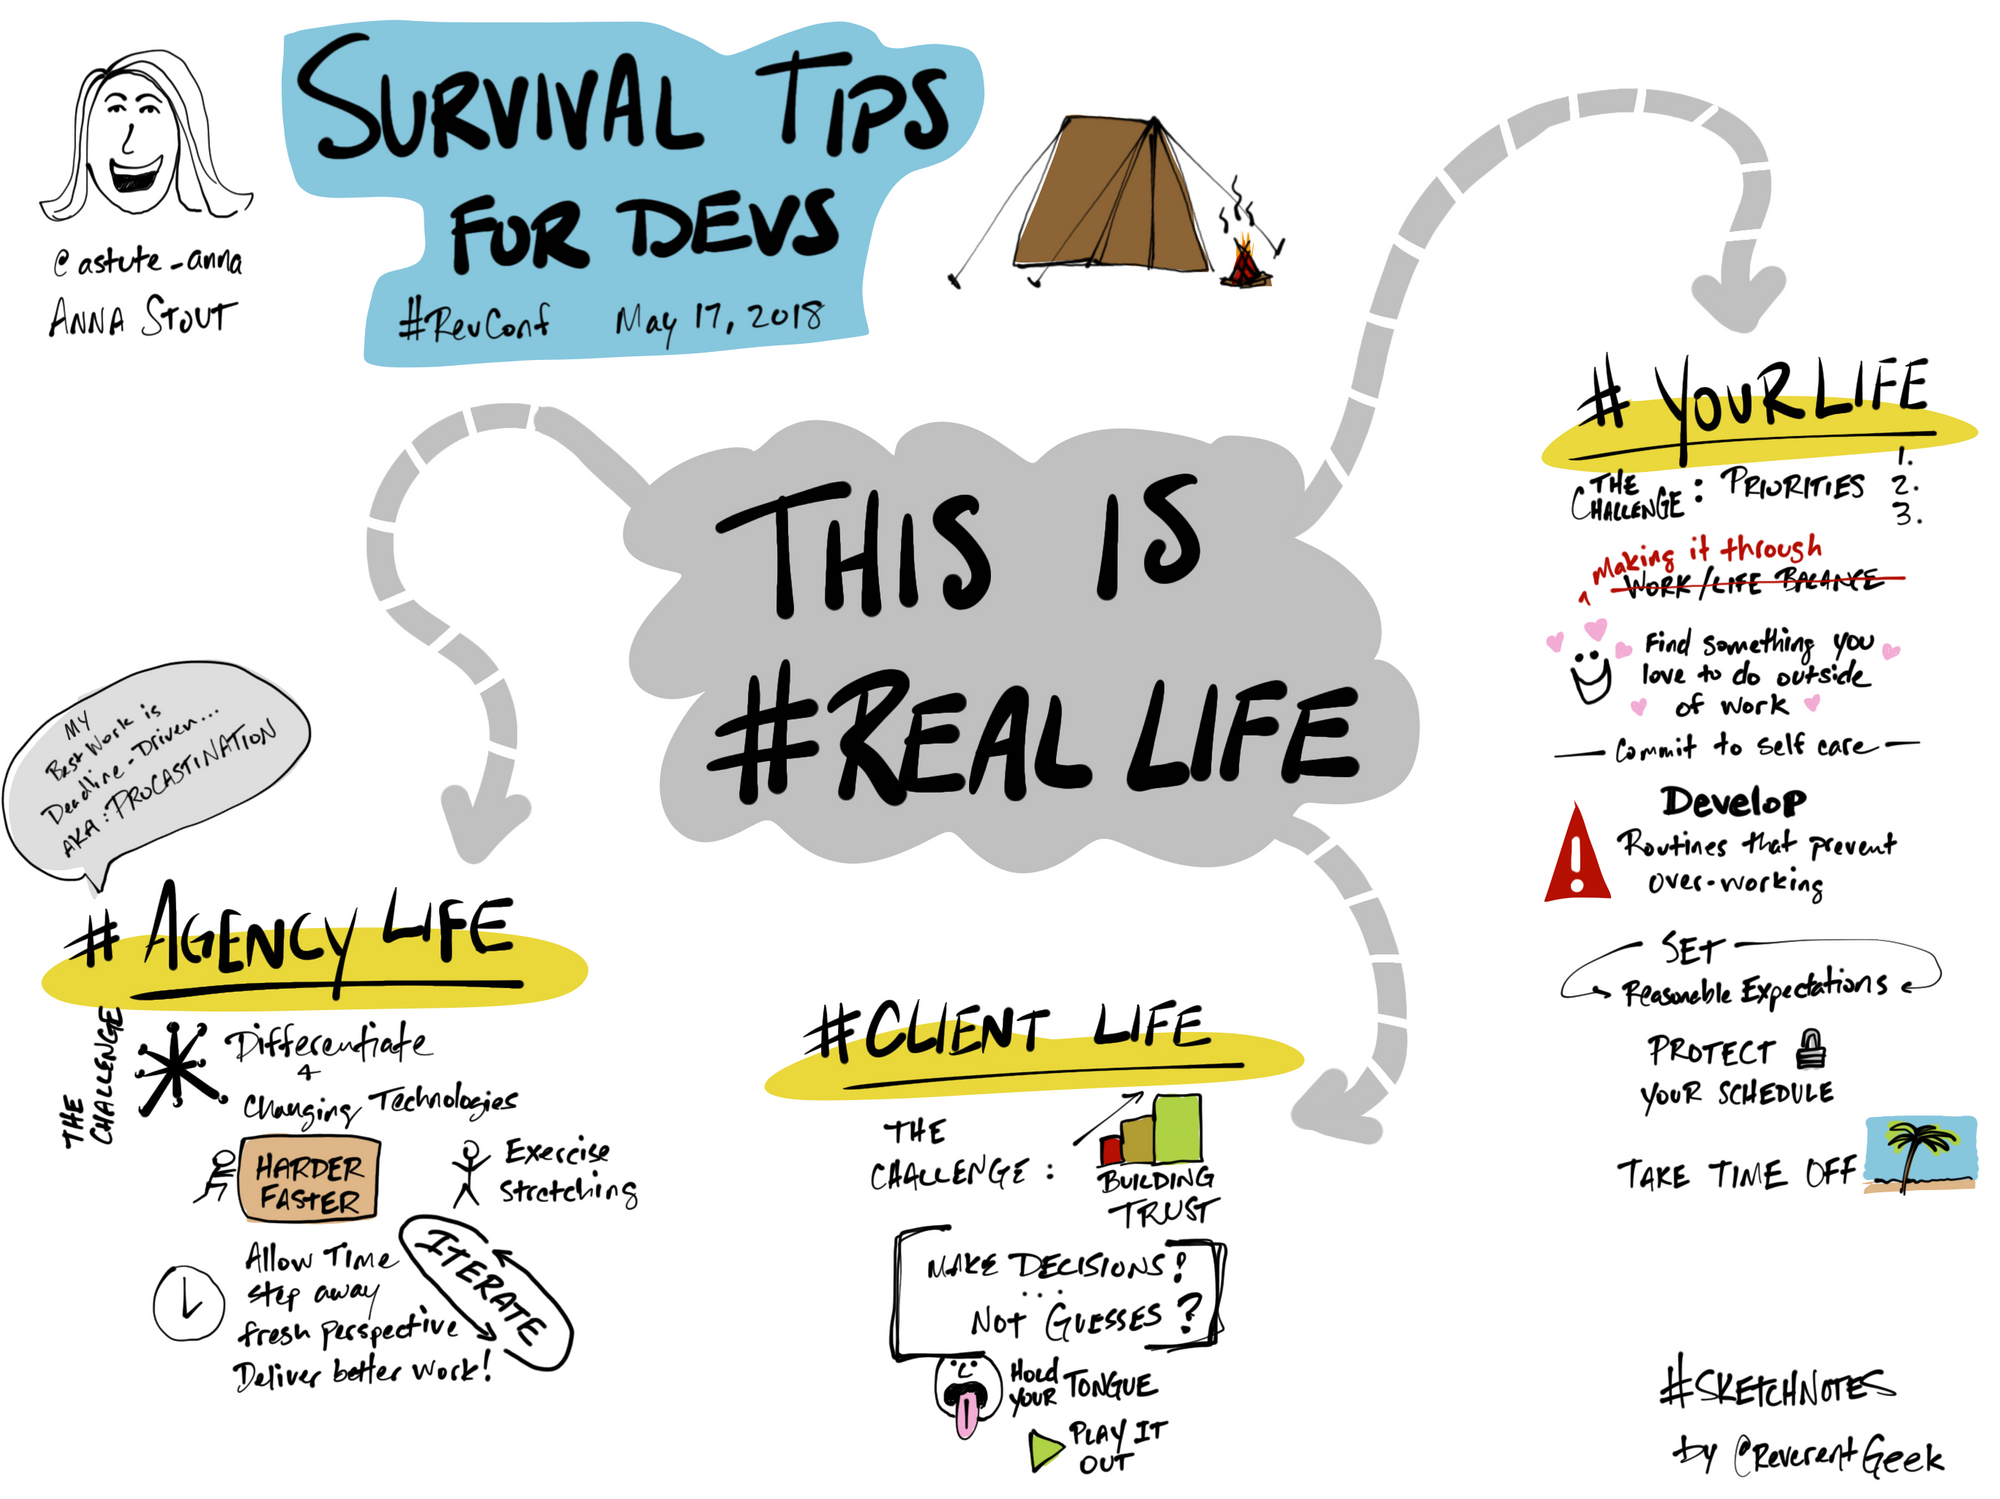 SURVIVAL TIPS
FOR DEVS
#RevConf May 17, 2018
@astute_anna
ANNA STOUT
THIS IS
#REAL LIFE
MY
Best Work is
Deadline-Driven...
AKA: PROCASTINATION
# AGENCY LIFE
THE
CHALLENGE
Differentiate
+
Changing Technologies
HARDER
FASTER
Exercise
stretching
Allow Time
step away
fresh perspective
Deliver better work!
ITERATE
#CLIENT LIFE
THE
CHALLENGE:
BUILDING
TRUST
MAKE DECISIONS!
...
NOT GUESSES?
HOLD
YOUR TONGUE
PLAY IT
OUT
# YOUR LIFE
THE
CHALLENGE: PRIORITIES
1.
2.
3.
Making it through
WORK/LIFE BALANCE
Find something you
love to do outside
of work
Commit to self care
Develop
Routines that prevent
over-working
SET
Reasonable Expectations
PROTECT
YOUR SCHEDULE
TAKE TIME OFF
#SKETCHNOTES
by @ReverentGeek